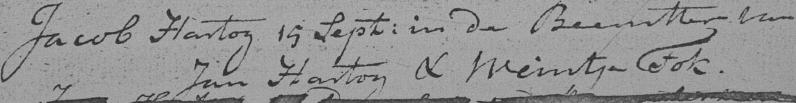 Jacob Hartog 15 Sept: in de Beemster van
Jan Hartog & Meintje Tok.